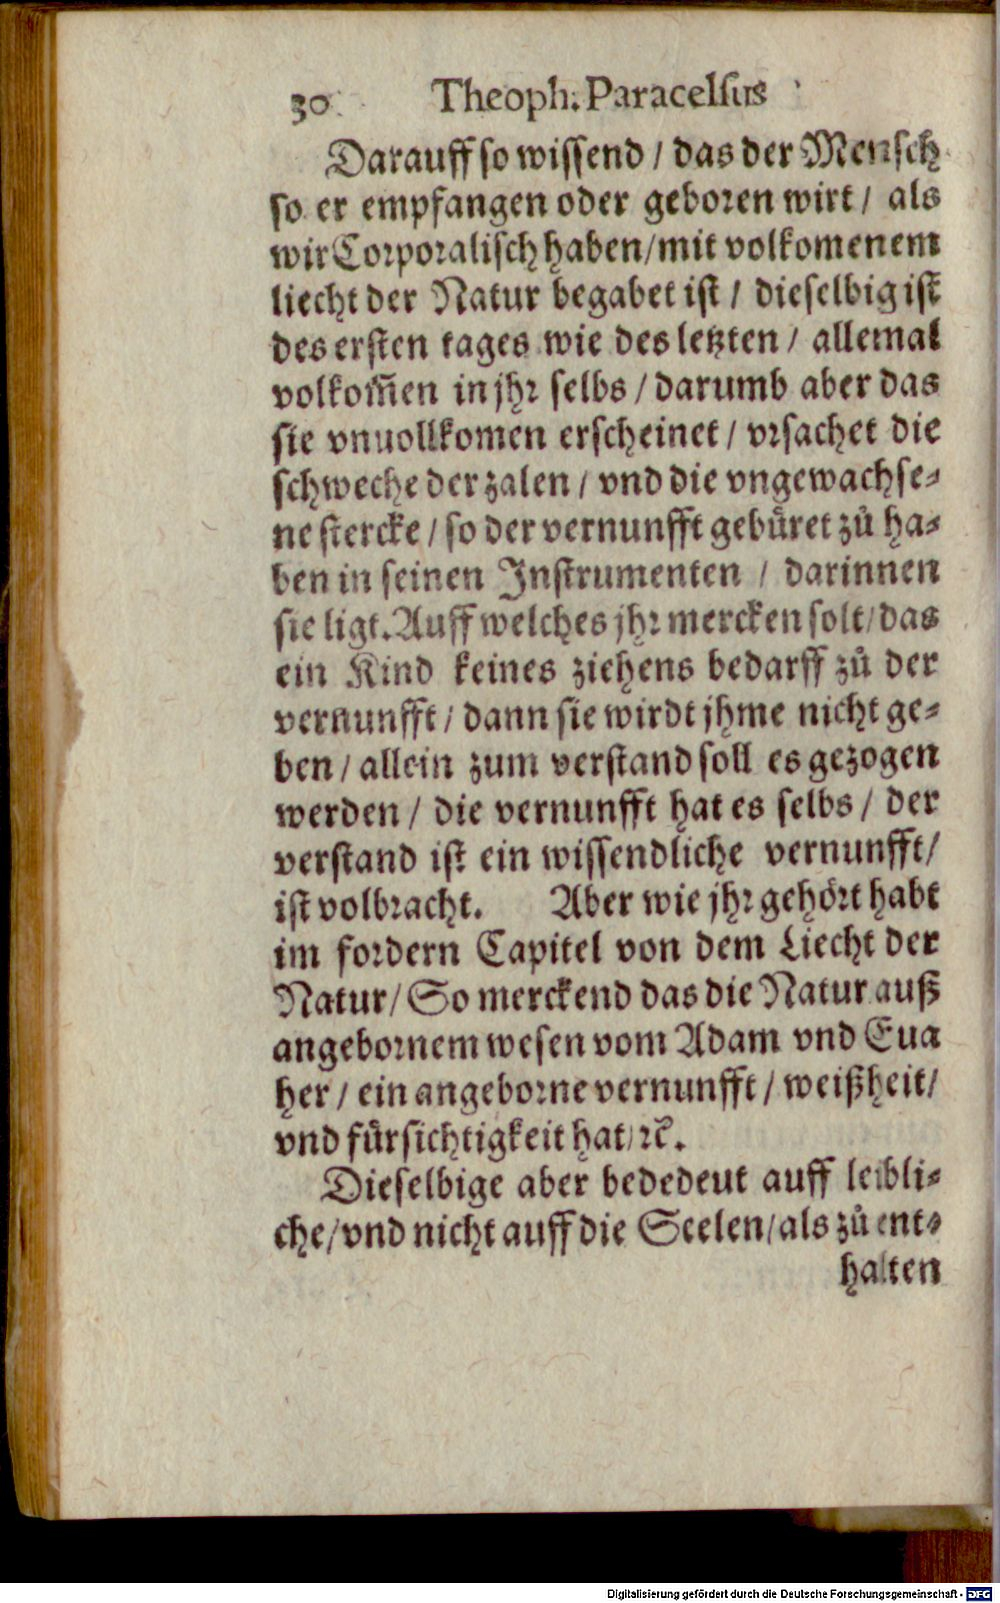 30 Theoph. Paracelsus
Darauff so wissend / das der Mensch
so er empfangen oder geboren wirt / als
wir Corporalisch haben / mit volkomenem
liecht der Natur begabet ist / dieselbig ist
des ersten tages wie des letzten / allemal
volkom̃en in jhr selbs / darumb aber das
sie vnuollkomen erscheinet / vrsachet die
schweche der zalen / vnd die vngewachse⸗
ne stercke / so der vernunfft gebüret zů ha⸗
ben in seinen Instrumenten / darinnen
sie ligt. Auff welches jhr mercken solt / das
ein Kind keines ziehens bedarff zů der
vernunfft / dann sie wirdt jhme nicht ge⸗
ben / allein zum verstand soll es gezogen
werden / die vernunfft hat es selbs / der
verstand ist ein wissendliche vernunfft /
ist volbracht. Aber wie jhr gehört habt
im fordern Capitel von dem Liecht der
Natur / So merckend das die Natur auß
angebornem wesen vom Adam vnd Eua
her / ein angeborne vernunfft / weißheit /
vnd fürsichtigkeit hat / ꝛc̃.
Dieselbige aber bededeut auff leibli⸗
che / vnd nicht auff die Seelen / als zů ent⸗
halten
Digitalisierung gefördert durch die Deutsche Forschungsgemeinschaft - DFG